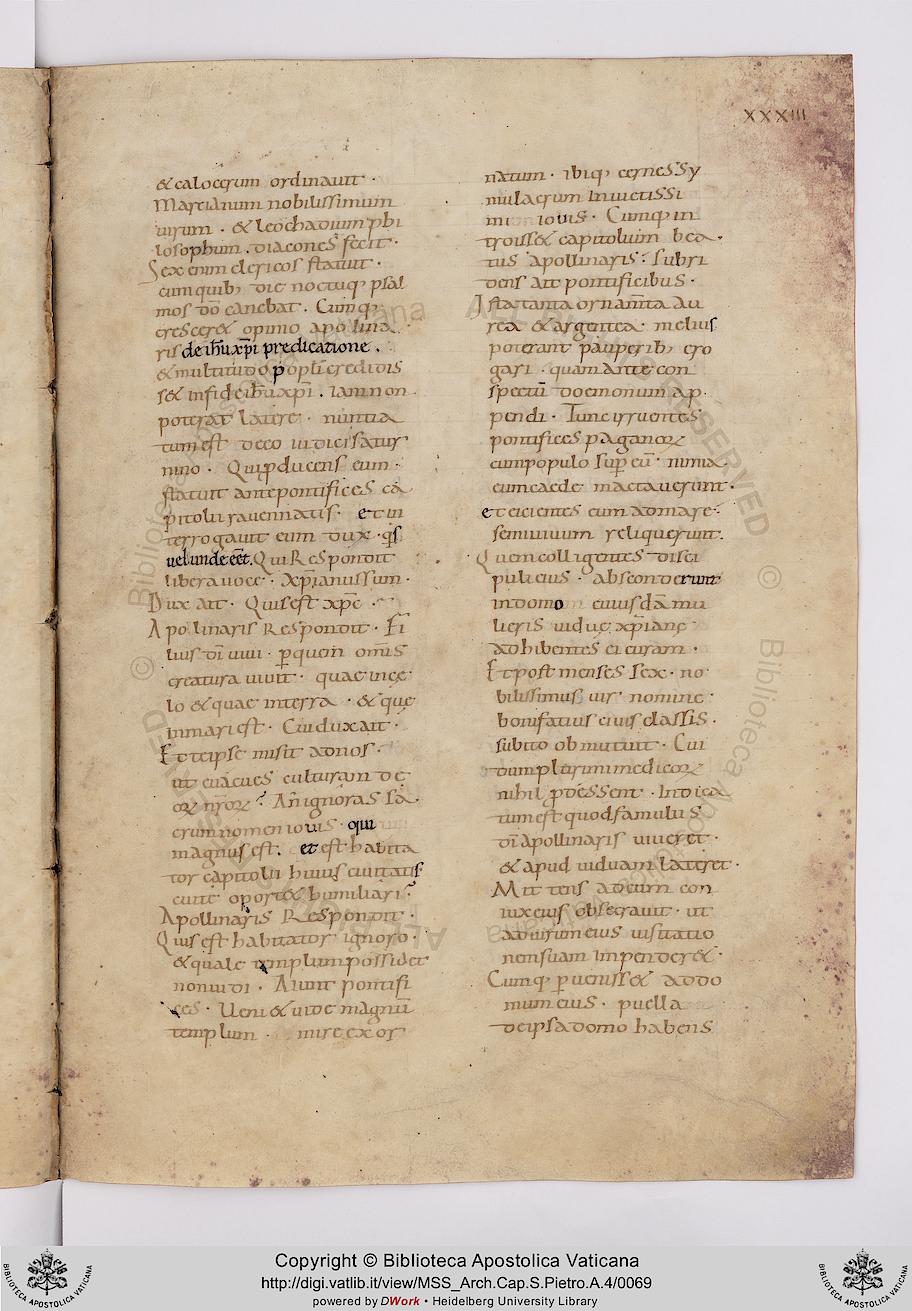 XXXIII
& calocerum ordinauit ·
Marcianum nobilissimum
uirum · & leochadium phi
losophum . diacones fecit ·
Sex enim clericos statuit ·
cum quib; die noctuq; psal
mos dō canebat . Cumq;
cresceret opinio apollina
ris de ihū xpi predicatione .
& multitudo popli credidis
s& in fide ihū xpi . iam non
poterat latere · nuntia
tum est de eo iudici satur
nino · Qui pducens eum ·
statuit ante pontifices ca
pitolii rauennatis · et in
terrogauit eum dux · qs
uel unde eēt . Qui Respondit
libera uoce · xpianus sum ·
Dux ait · Quis est xpc ·
Apollinaris Respondit · Fi
lius dī uiui · p quem omīs
creatura uiuit · quae in ce
lo & quae in terra · & que
in mari est · Cui dux ait ·
Et te ipse misit ad nos ·
ut euacues culturam de
oꝝ nr̄oꝝ ? An ignoras sa
crum nomen iouis · qui
magnus est . et est habita
tor capitolii huius ciuitatis
cui te oport& humiliari ?
Apollinaris Respondit ·
Quis est habitator ignoro ·
& quale templum possidet
non uidi · Aiunt pontifi
ces · Ueni & uide magnū
templum · mire exor
natum · ibiq; cernes sy
mulacrum inuictissi
mi iouis · Cumq; in
troiss& capitolium bea
tus apollinaris : subri
dens ait pontificibus ·
Ista tanta ornam̄ta au
rea & argentea melius
poterant pauperib; ero
gari · quam ante con
spectū doemonum ap
pendi · Tunc irruentes
pontifices paganoꝝ
cum populo sup eū · nimia
cum caede mactauerunt ·
et eicientes eum ad mare ·
semiuiuum reliquerunt .
Quem colligentes disci
puli eius · absconderunt
in domo cuiusdā mu
lieris uiduę xpianę
adhibentes ei curam ·
Et post menses sex · no
bilissimus uir nomine ·
bonifatius ciuis classis ·
subito obmutuit · Cui
dum plurimi medicoꝝ
nihil pdessent · Indica
tum est quod famulus
dī apollinaris uiueret ·
& apud uiduam lateret ·
Mittens ad eum con
iux eius obsecrauit · ut
ad uirum eius uisitatio
nem suam impender& ·
Cumq; p ueniss& ad do
mum eius · puella
de ipsa domo habens
Copyright © Biblioteca Apostolica Vaticana
http://digi.vatlib.it/view/MSS_Arch.Cap.S.Pietro.A.4/0069
powered by DWork • Heidelberg University Library